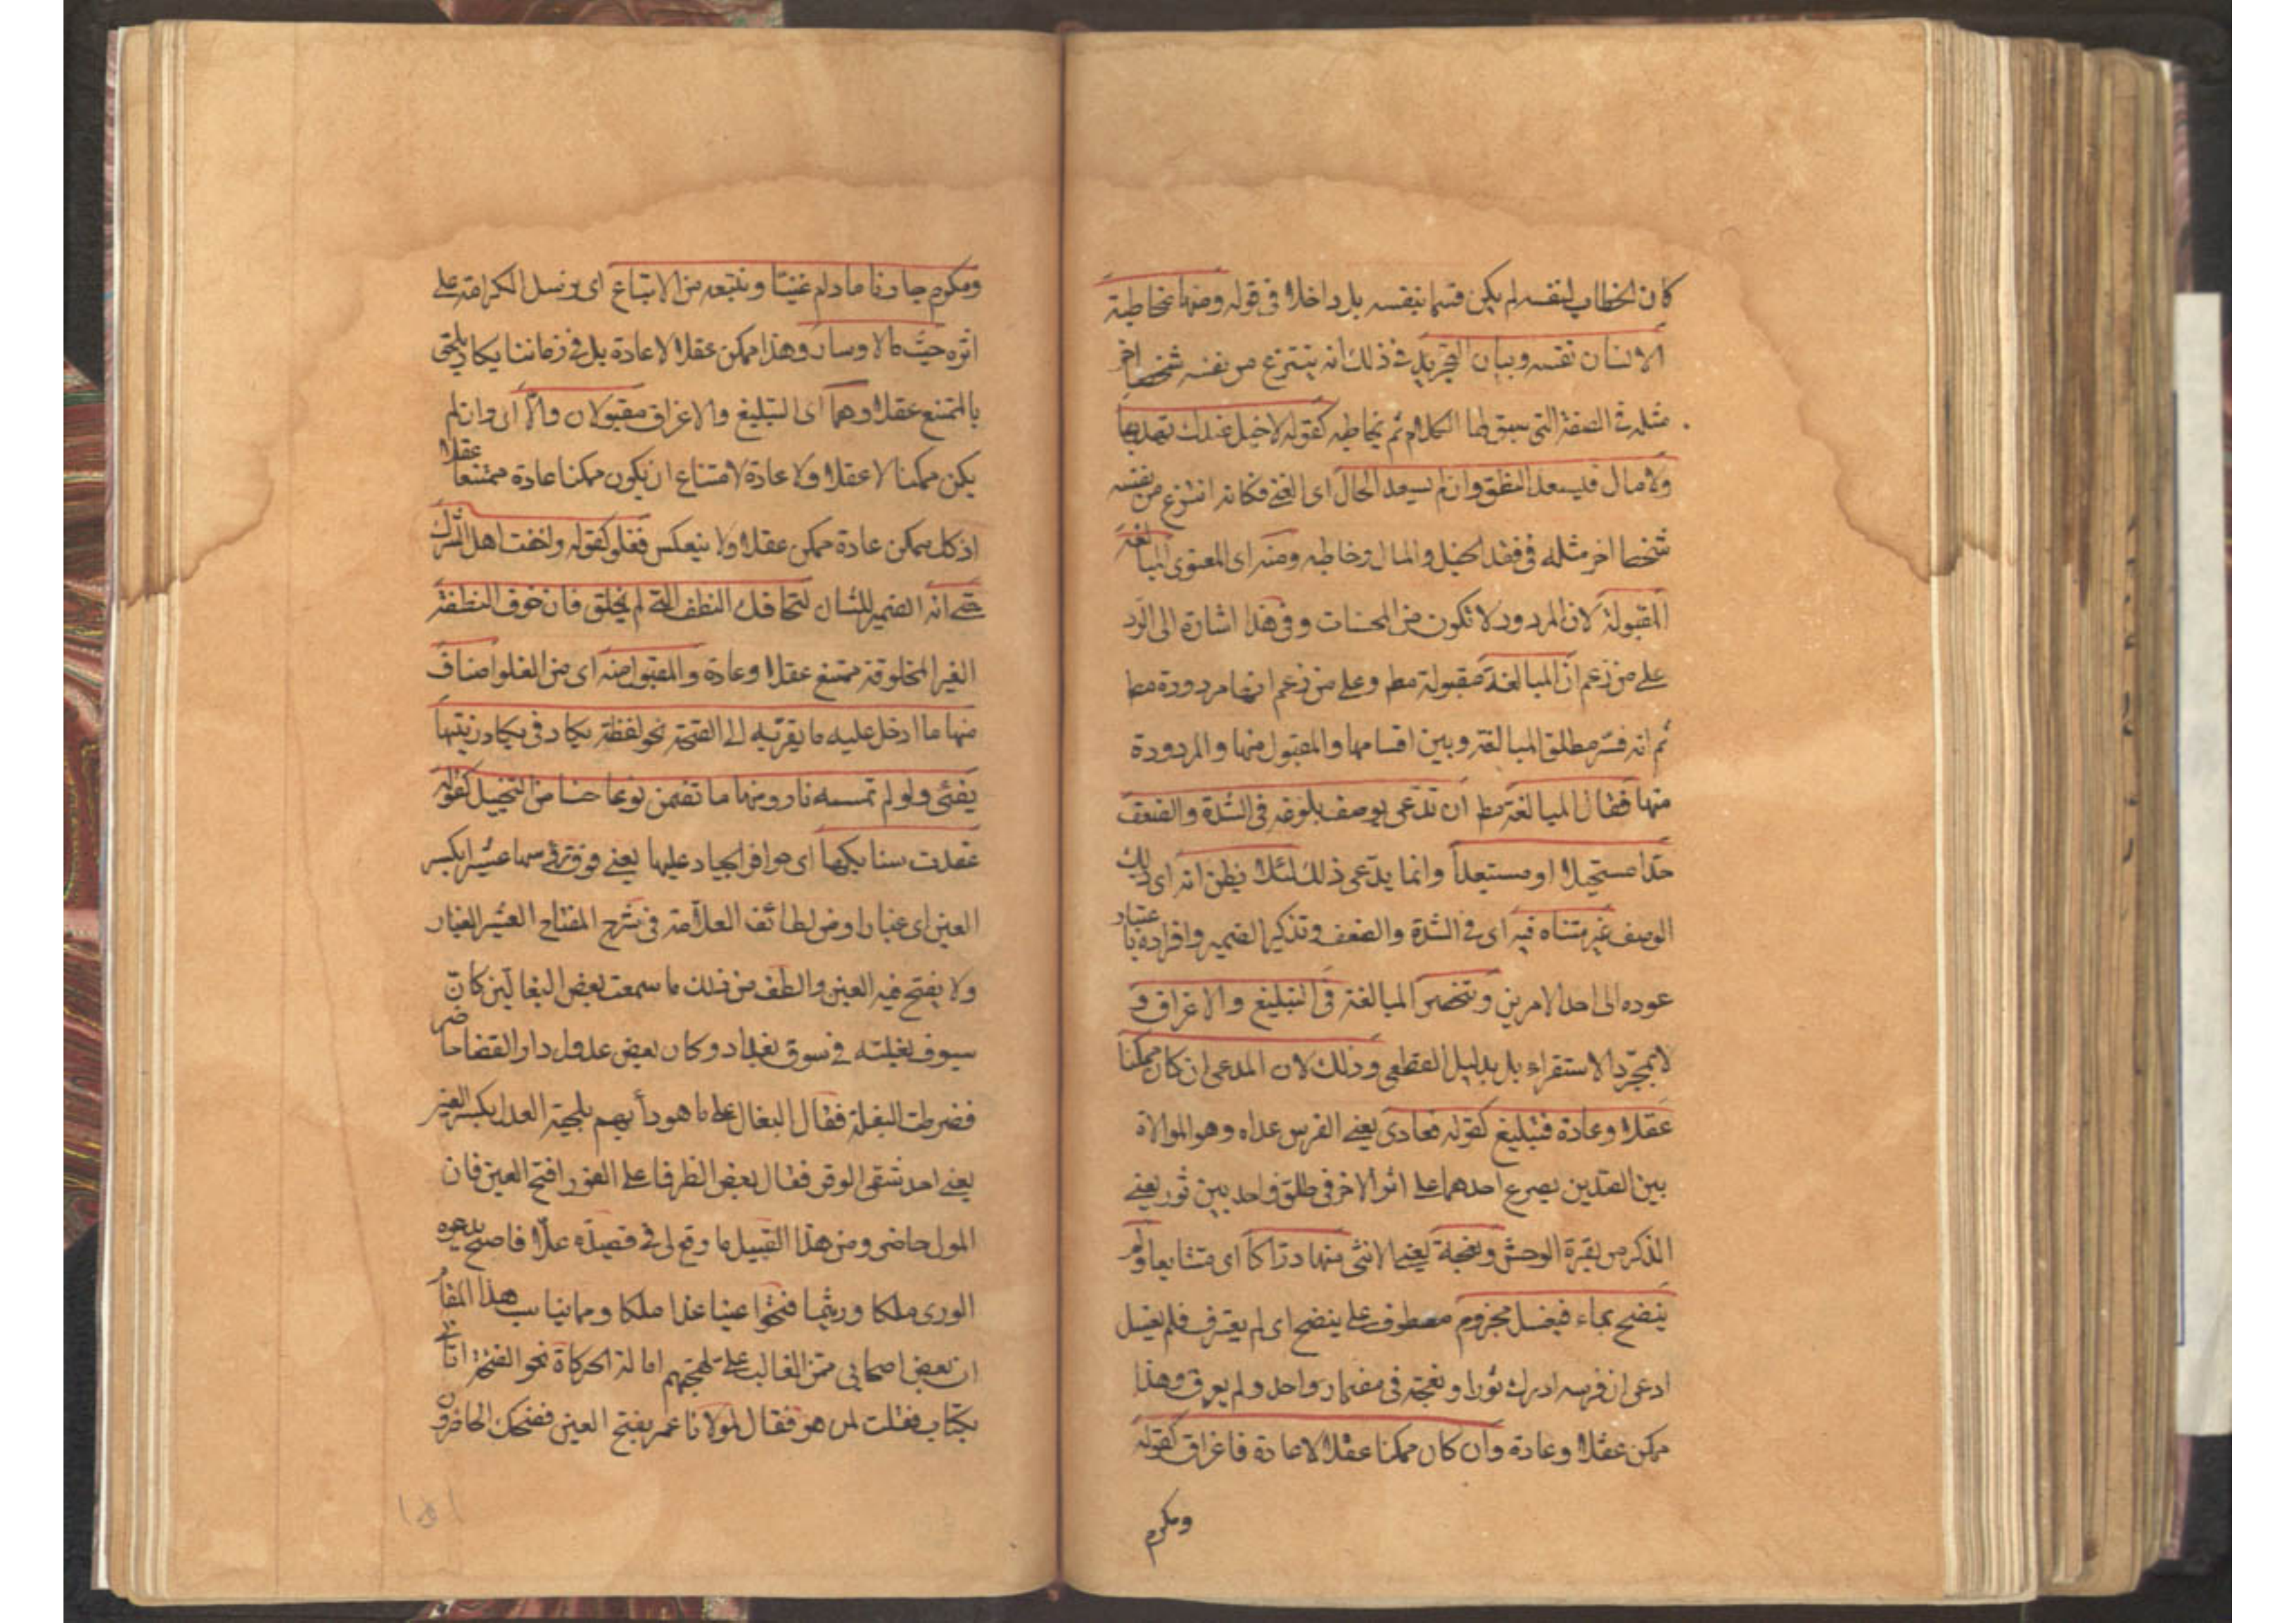 كان الخطاب لنفسه لم يكن قسما بنفسه بل داخلا فى قوله ومنها مخاطبة
الانسان نفسه وبيان التجريد فى ذلك انه ينتزع من نفسه شخصا اخر
مثله فى الصفة التى سيق لها الكلام ثم يخاطبه كقوله لا خيل عندك تهديها
ولا مال فليسعد النطق وان لم يسعد الحال اى الغنى فكانه انتزع من نفسه
شخصا اخر مثله فى فقد الخيل والمال وخاطبه ومنه اى المعنوى المبالغة
المقبولة لان المردود لا تكون من المحسنات وفى هذا اشارة الى الرد
على من زعم ان المبالغة مقبولة مط وعلى من زعم انها مردودة مط
ثم انه فسر مطلق المبالغة وبين اقسامها والمقبول منها والمردودة
منها فقال المبالغة مط ان تدعى بوصف بلوغه فى الشدة والضعف
حدا مستحيلا او مستبعدا وانما يدعى ذلك لئلا يظن انه اى ذلك
الوصف غير متناه فيه اى فى الشدة والضعف وتذكير الضمير وافراده باعتبار
عوده الى احد الامرين وتنحصر المبالغة فى التبليغ والاغراق و
لا بمجرد الاستقراء بل بدليل القطعى وذلك لان المدعى ان كان ممكنا
عقلا وعادة فتبليغ كقوله فعادى يعنى الفرس عداه وهو الموالاة
بين الصدين يصرع احدهما على اثر الاخر فى طلق واحد بين ثور يعنى
الذكر من بقرة الوحش ونعجة يعنى الانثى منها دراكا اى متتابعا ولم
ينضح بماء فيغسل مجزوم معطوف على ينضح اى لم يعترف فلم يغسل
ادعى ان فرسه ادرك ثورا ونعجة فى مضمار واحد ولم يعرق وهذا
ممكن عقلا وعادة وان كان ممكنا عقلا لا عادة فاغراق كقوله
ومكرم
ومكرم جارنا مادام غنينا ونتبعه من الاتباع اى نرسل الكرامة على
اثره حيث مالا وسار وهذا ممكن عقلا لا عادة بل فى زماننا يكاد يلحق
بالممتنع عقلا وهما اى التبليغ والاغراق مقبولان والا اى وان لم
يكن ممكنا لا عقلا ولا عادة لامتناع ان يكون ممكنا عادة ممتنعا عقلا
اذ كل ممكن عادة ممكن عقلا ولا ينعكس فغلو كقوله واخفت اهل الشرك
حتى انه الضمير للشان لتخافك النطف التى لم يخلق فان خوف النطفة
الغير المخلوقة ممتنع عقلا وعادة والمقبول منه اى من الغلو اصناف
منها ما ادخل عليه ما يقربه الى الصحة نحو لفظة يكاد فى يكاد زيتها
يضئ ولو لم تمسسه نار ومنها ما تضمن نوعا حسنا من التخييل كقوله
عقدت سنابكها اى حوافر الجياد عليها يعنى فوق رؤسها عثيرا بكسر
العين اى غبارا ومن لطائف العلامة فى شرح المفتاح العثير الغبار
ولا يفتح فيه العين والطف من ذلك ما سمعت بعض البغالين كان
سيوف بغلته فى سوق بغداد وكان بعض عدول دار القضا حاضر
فضرطت البغلة فقال البغال على ما هو دأبهم بلحية العدل بكسر العين
يعنى احد شقى الوقر فقال بعض الظرفا على الفور افتح العين فان
المولى حاضر ومن هذا القبيل ما وقع لى فى قصيدة علا فاصبح يدعوه
الورى ملكا وريثما فتحوا عينا غذا ملكا ومما يناسب هذا المقام
ان بعض اصحابى ممن الغالب على لهجتهم امالة الحركاة نحو الفتحة اتانى
بكتاب فقلت لمن هو فقال لمولانا عمر بفتح العين فضحك الحاضرون